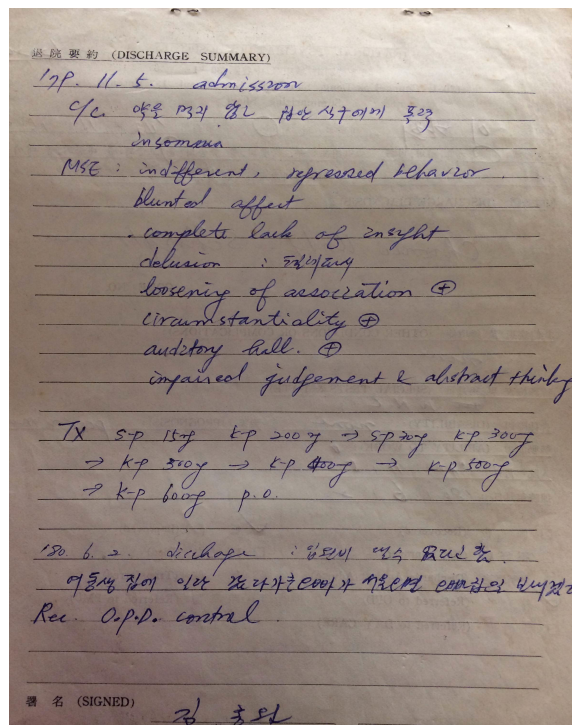 退院要約 (DISCHARGE SUMMARY)
'79. 11. 5. admission
c/c. 약을 먹지 않고 집안 식구에게 폭력
insomnia
MSE : indifferent, regressed behavior.
blunted affect
. complete lack of insight
delusion :
loosening of association ⊕
circumstantiality ⊕
auditory hall. ⊕
impaired judgement & abstract thinking
Tx s-p 15mg k-p 200mg → sp 30mg k-p 300mg
→ k-p 500mg → k-p 400mg → k-p 500mg
→ k-p 600mg p.o.
'80. 6. 2. dischage : 입원비
여동생 집에
Rec. O.P.D. control.
署名 (SIGNED)